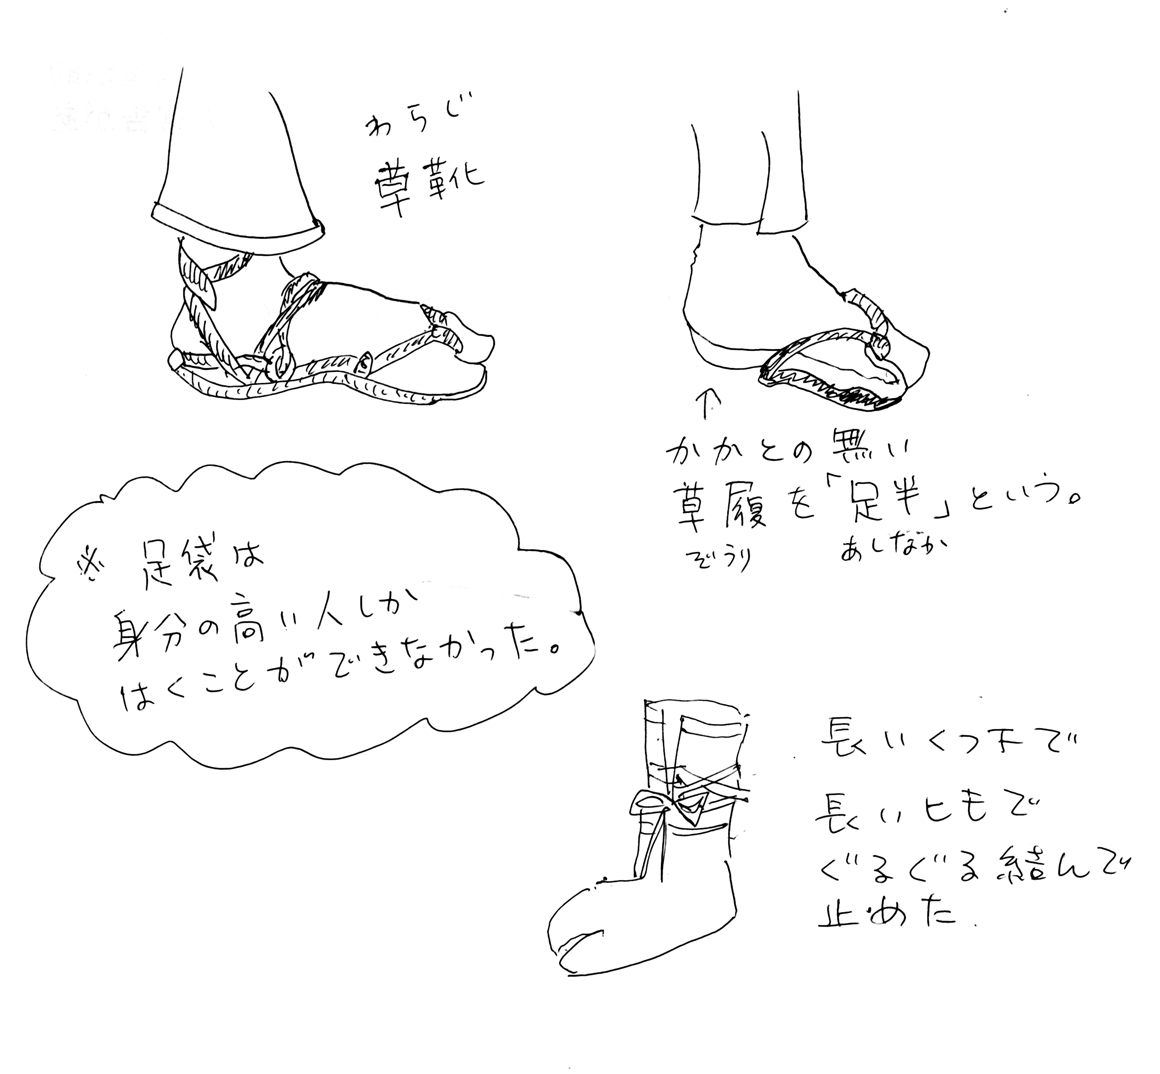 わらじ
草靴
かかとの無い
草履を「足半」という。
ぞうり あしなか
※ 足袋は
身分の高い人しか
はくことができなかった。
長いくつ下で
長いヒモで
ぐるぐる結んで
止めた.